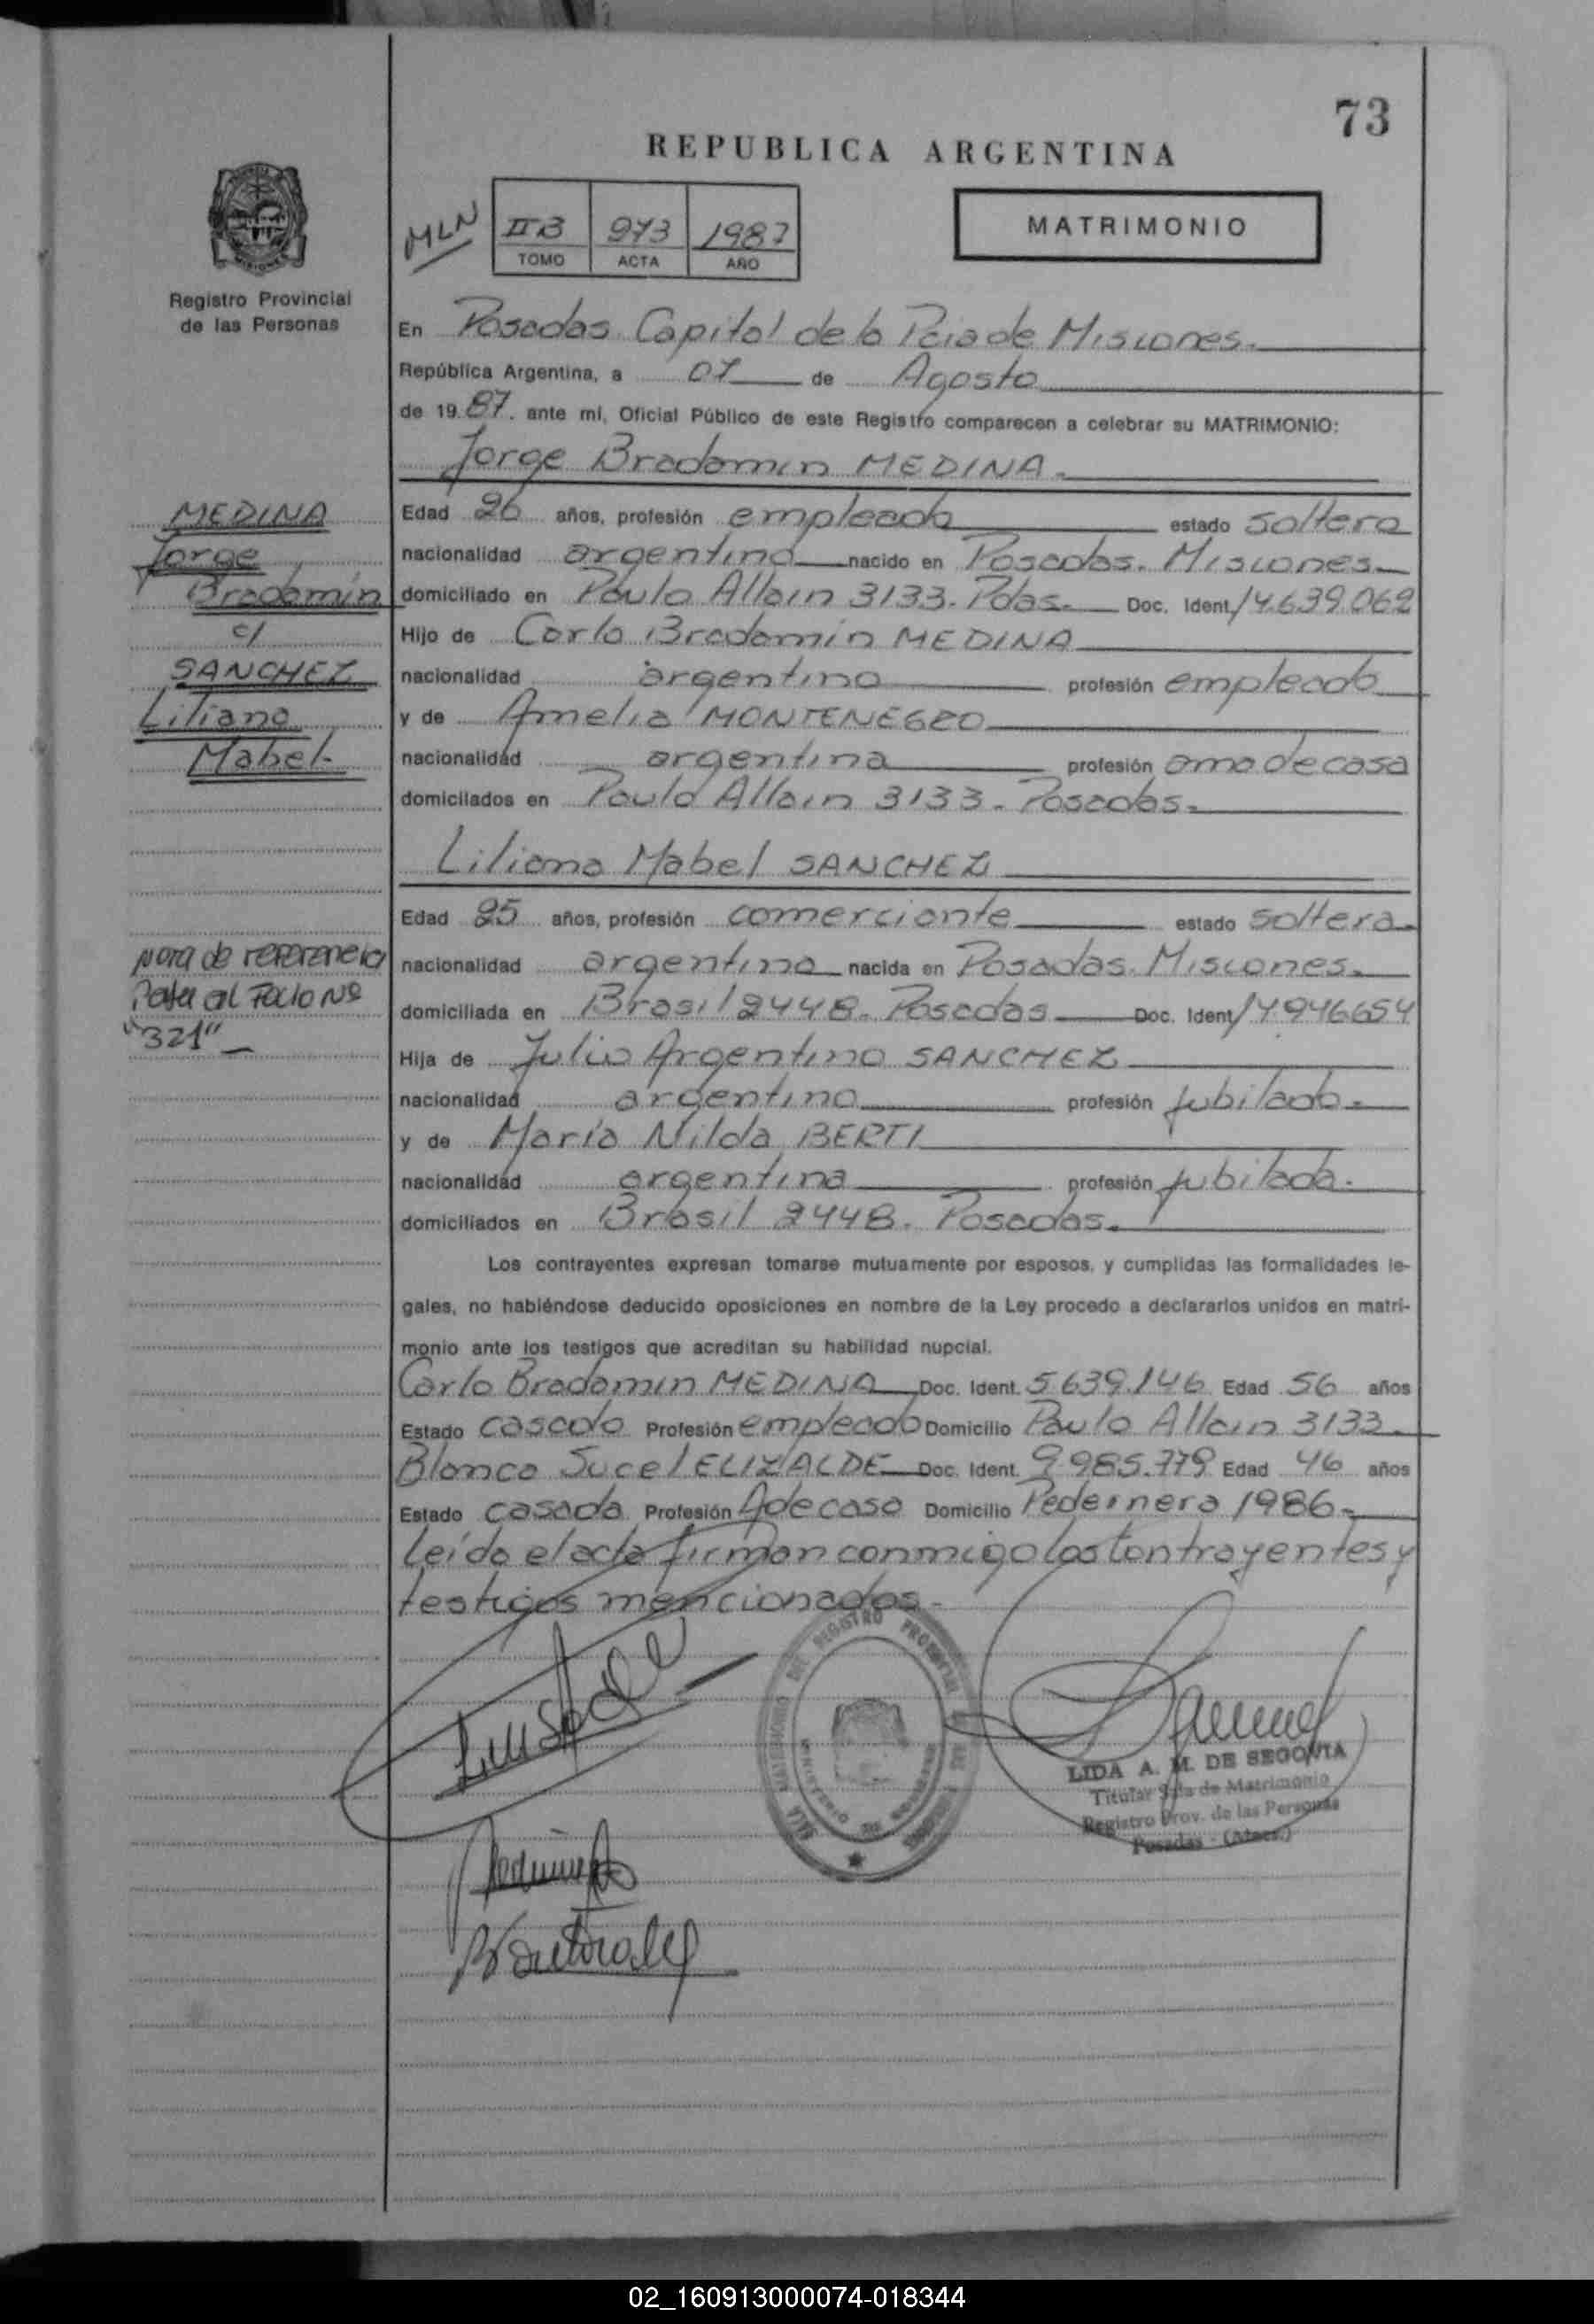 73
REPUBLICA ARGENTINA
MLN
II B 973 1987
TOMO ACTA AÑO
MATRIMONIO
Registro Provincial
de las Personas
En Posadas Capital de la Pcia de Misiones.
República Argentina, a 07 de Agosto
de 19 87. ante mí, Oficial Público de este Registro comparecen a celebrar su MATRIMONIO:
Jorge Bradomin MEDINA.
MEDINA
Jorge
Bradomín
c/
SANCHEZ
Liliana
Mabel.
Edad 26 años, profesión empleado estado soltero
nacionalidad argentino nacido en Posadas. Misiones.
domiciliado en Paulo Allain 3133. Pdas. Doc. Ident. 14.639.062
Hijo de Carlo Bradomín MEDINA
nacionalidad argentino profesión empleado
y de Amelia MONTENEGRO
nacionalidad argentina profesión ama de casa
domiciliados en Paulo Allain 3133. Posadas.
Liliana Mabel SANCHEZ
Edad 25 años, profesión comerciante estado soltera.
nacionalidad argentina nacida en Posadas. Misiones.
domiciliada en Brasil 2448. Posadas Doc. Ident 14946654
Hija de Julio Argentino SANCHEZ
nacionalidad argentino profesión jubilado.
y de María Nilda BERTI
nacionalidad argentina profesión jubilada.
domiciliados en Brasil 2448. Posadas.
Nota de referencia
Pasa al Folio Nº
"321"
Los contrayentes expresan tomarse mutuamente por esposos, y cumplidas las formalidades le-
gales, no habiéndose deducido oposiciones en nombre de la Ley procedo a declararlos unidos en matri-
monio ante los testigos que acreditan su habilidad nupcial.
Carlo Bradomin MEDINA Doc. Ident. 5.639.146 Edad 56 años
Estado casado Profesión empleado Domicilio Paulo Allain 3133.
Blanca Sucel ELIZALDE Doc. Ident. 9.985.779 Edad 46 años
Estado casada Profesión A de casa Domicilio Pedernera 1986.
leída el acta firman conmigo los contrayentes y
testigos mencionados.
LIDA A. M. DE SEGOVIA
Titular Sala de Matrimonio
Registro Prov. de las Personas
Posadas - (Mnes.)
02_160913000074-018344